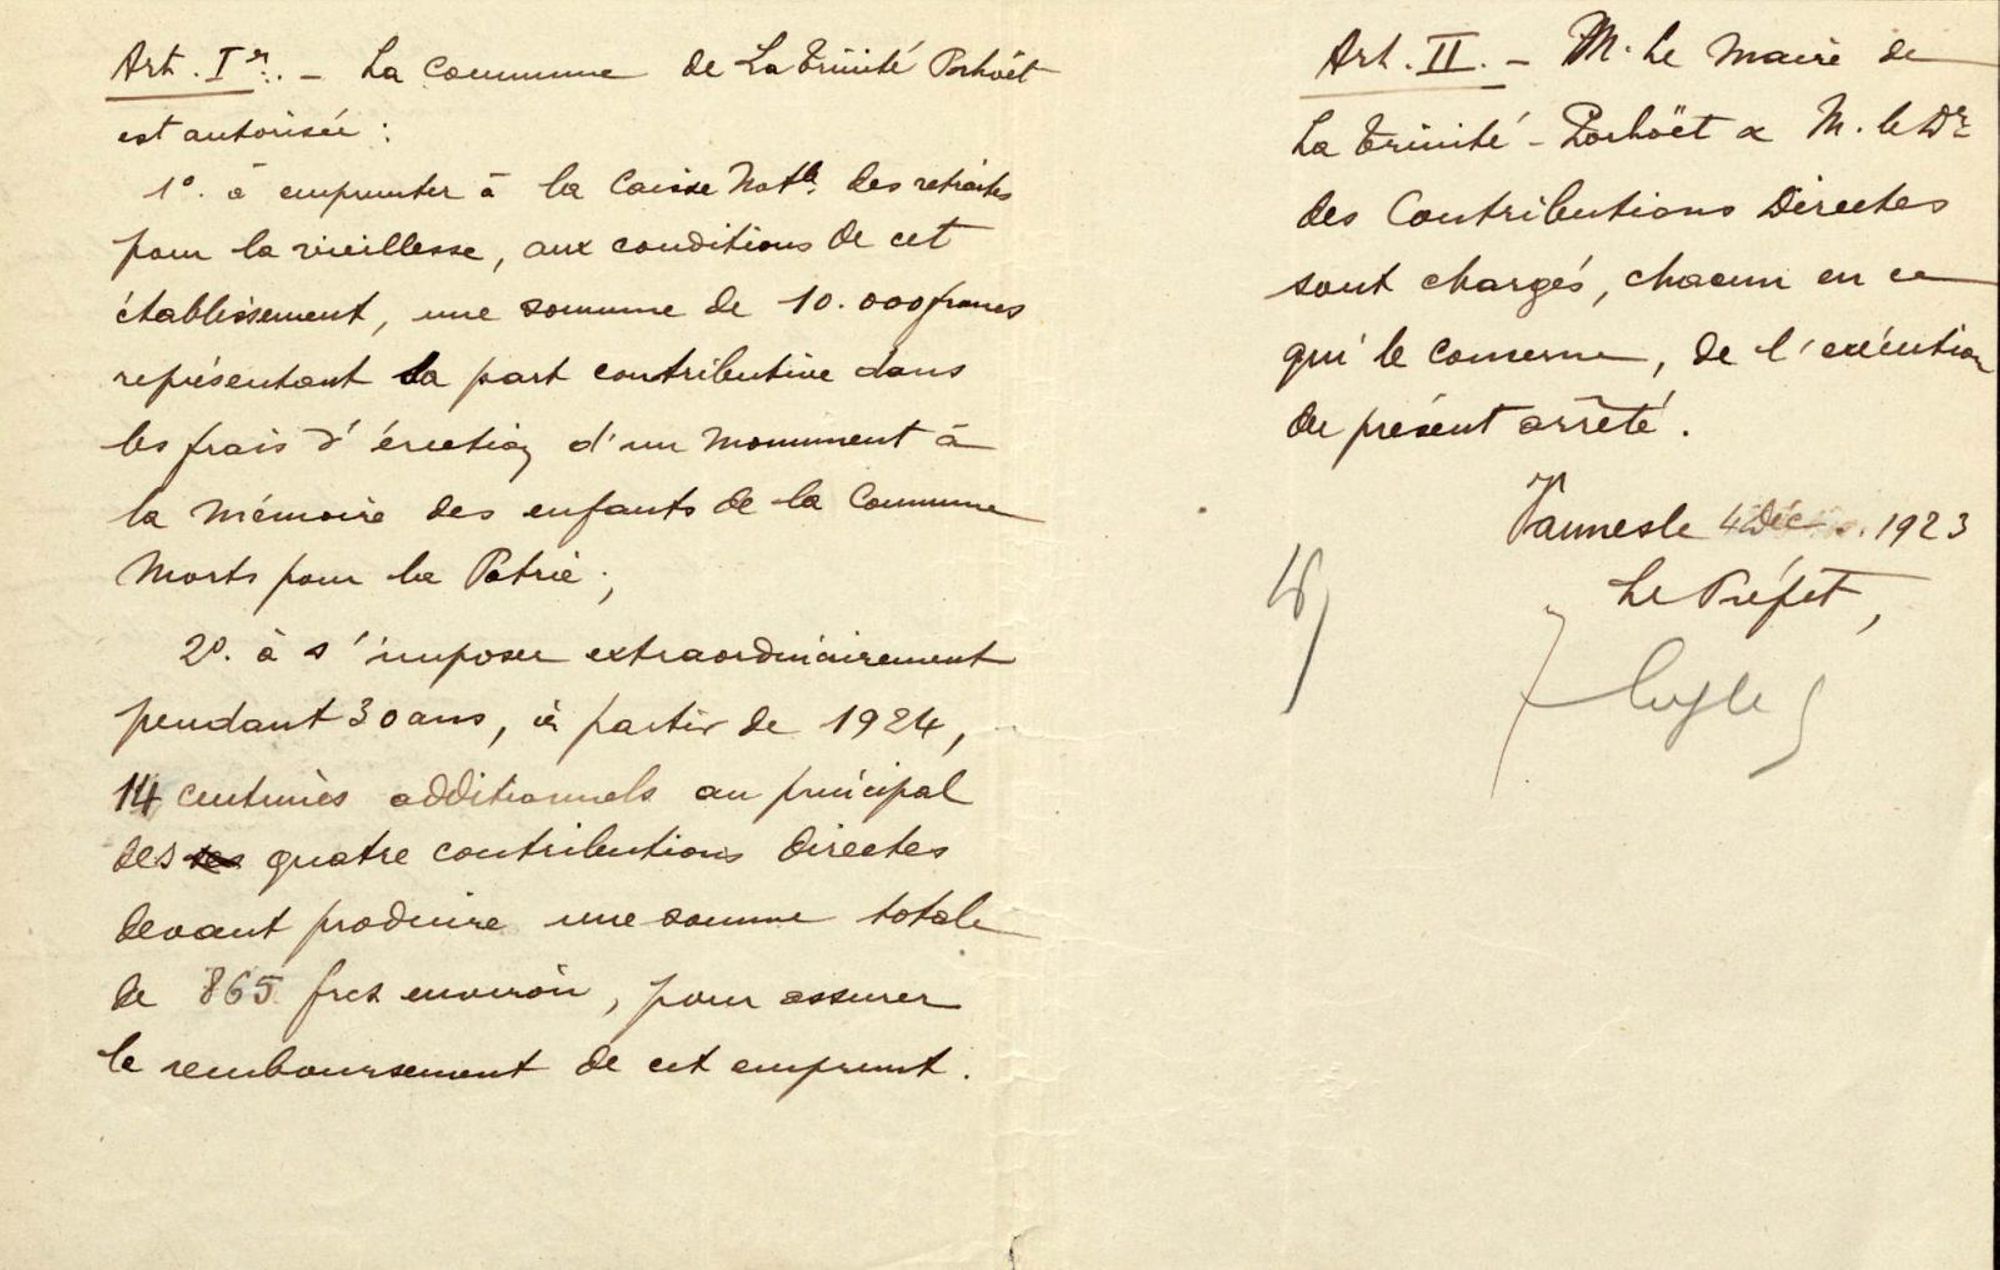 Art. Ier. - La Commune de La Trinité Porhoët
est autorisée :
1°. à emprunter à la Caisse Natle des retraites
pour la vieillesse, aux conditions de cet
établissement, une somme de 10.000 francs
représentant sa part contributive dans
les frais d'érection d'un Monument à
la Mémoire des enfants de la Commune
Morts pour la Patrie ;
2°. à s'imposer extraordinairement
pendant 30 ans, à partir de 1924,
14 centimes additionnels au principal
des quatre contributions directes
devant produire une somme totale
de 865 frcs environ, pour assurer
le remboursement de cet emprunt.
Art. II. - M. Le Maire de
La Trinité - Porhoët & M. le Dr
des Contributions Directes
sont chargés, chacun en ce
qui le concerne, de l'exécution
du présent arrêté.
Vannes le 4 Déc. 1923
Le Préfet,